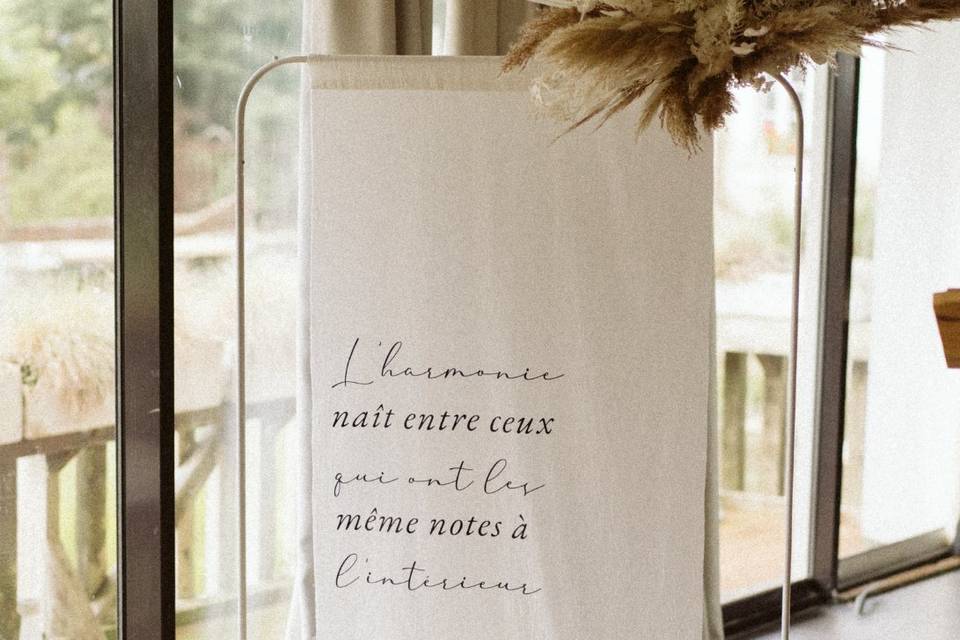 L'harmonie
naît entre ceux
qui ont les
même notes à
l'intérieur